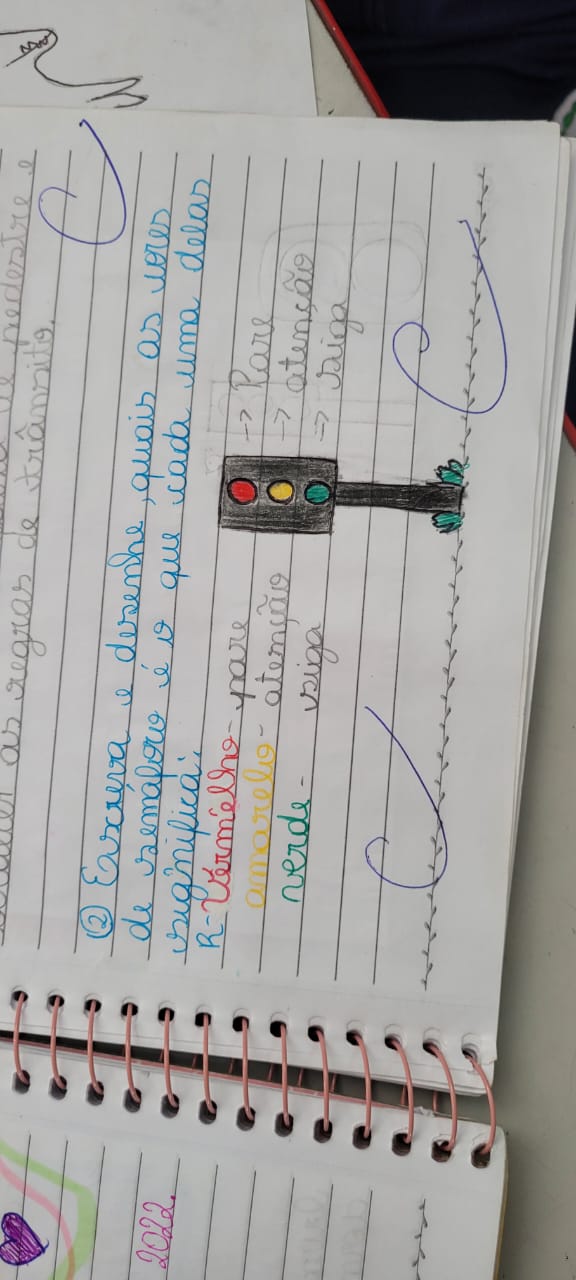 as regras de trânsito.
② Escreva e desenhe, quais as cores
de semáforo é o que cada uma delas
significa:
R- Vermelho - pare
amarelo - atenção
verde - siga
-> Pare
-> atenção
-> siga
2022.